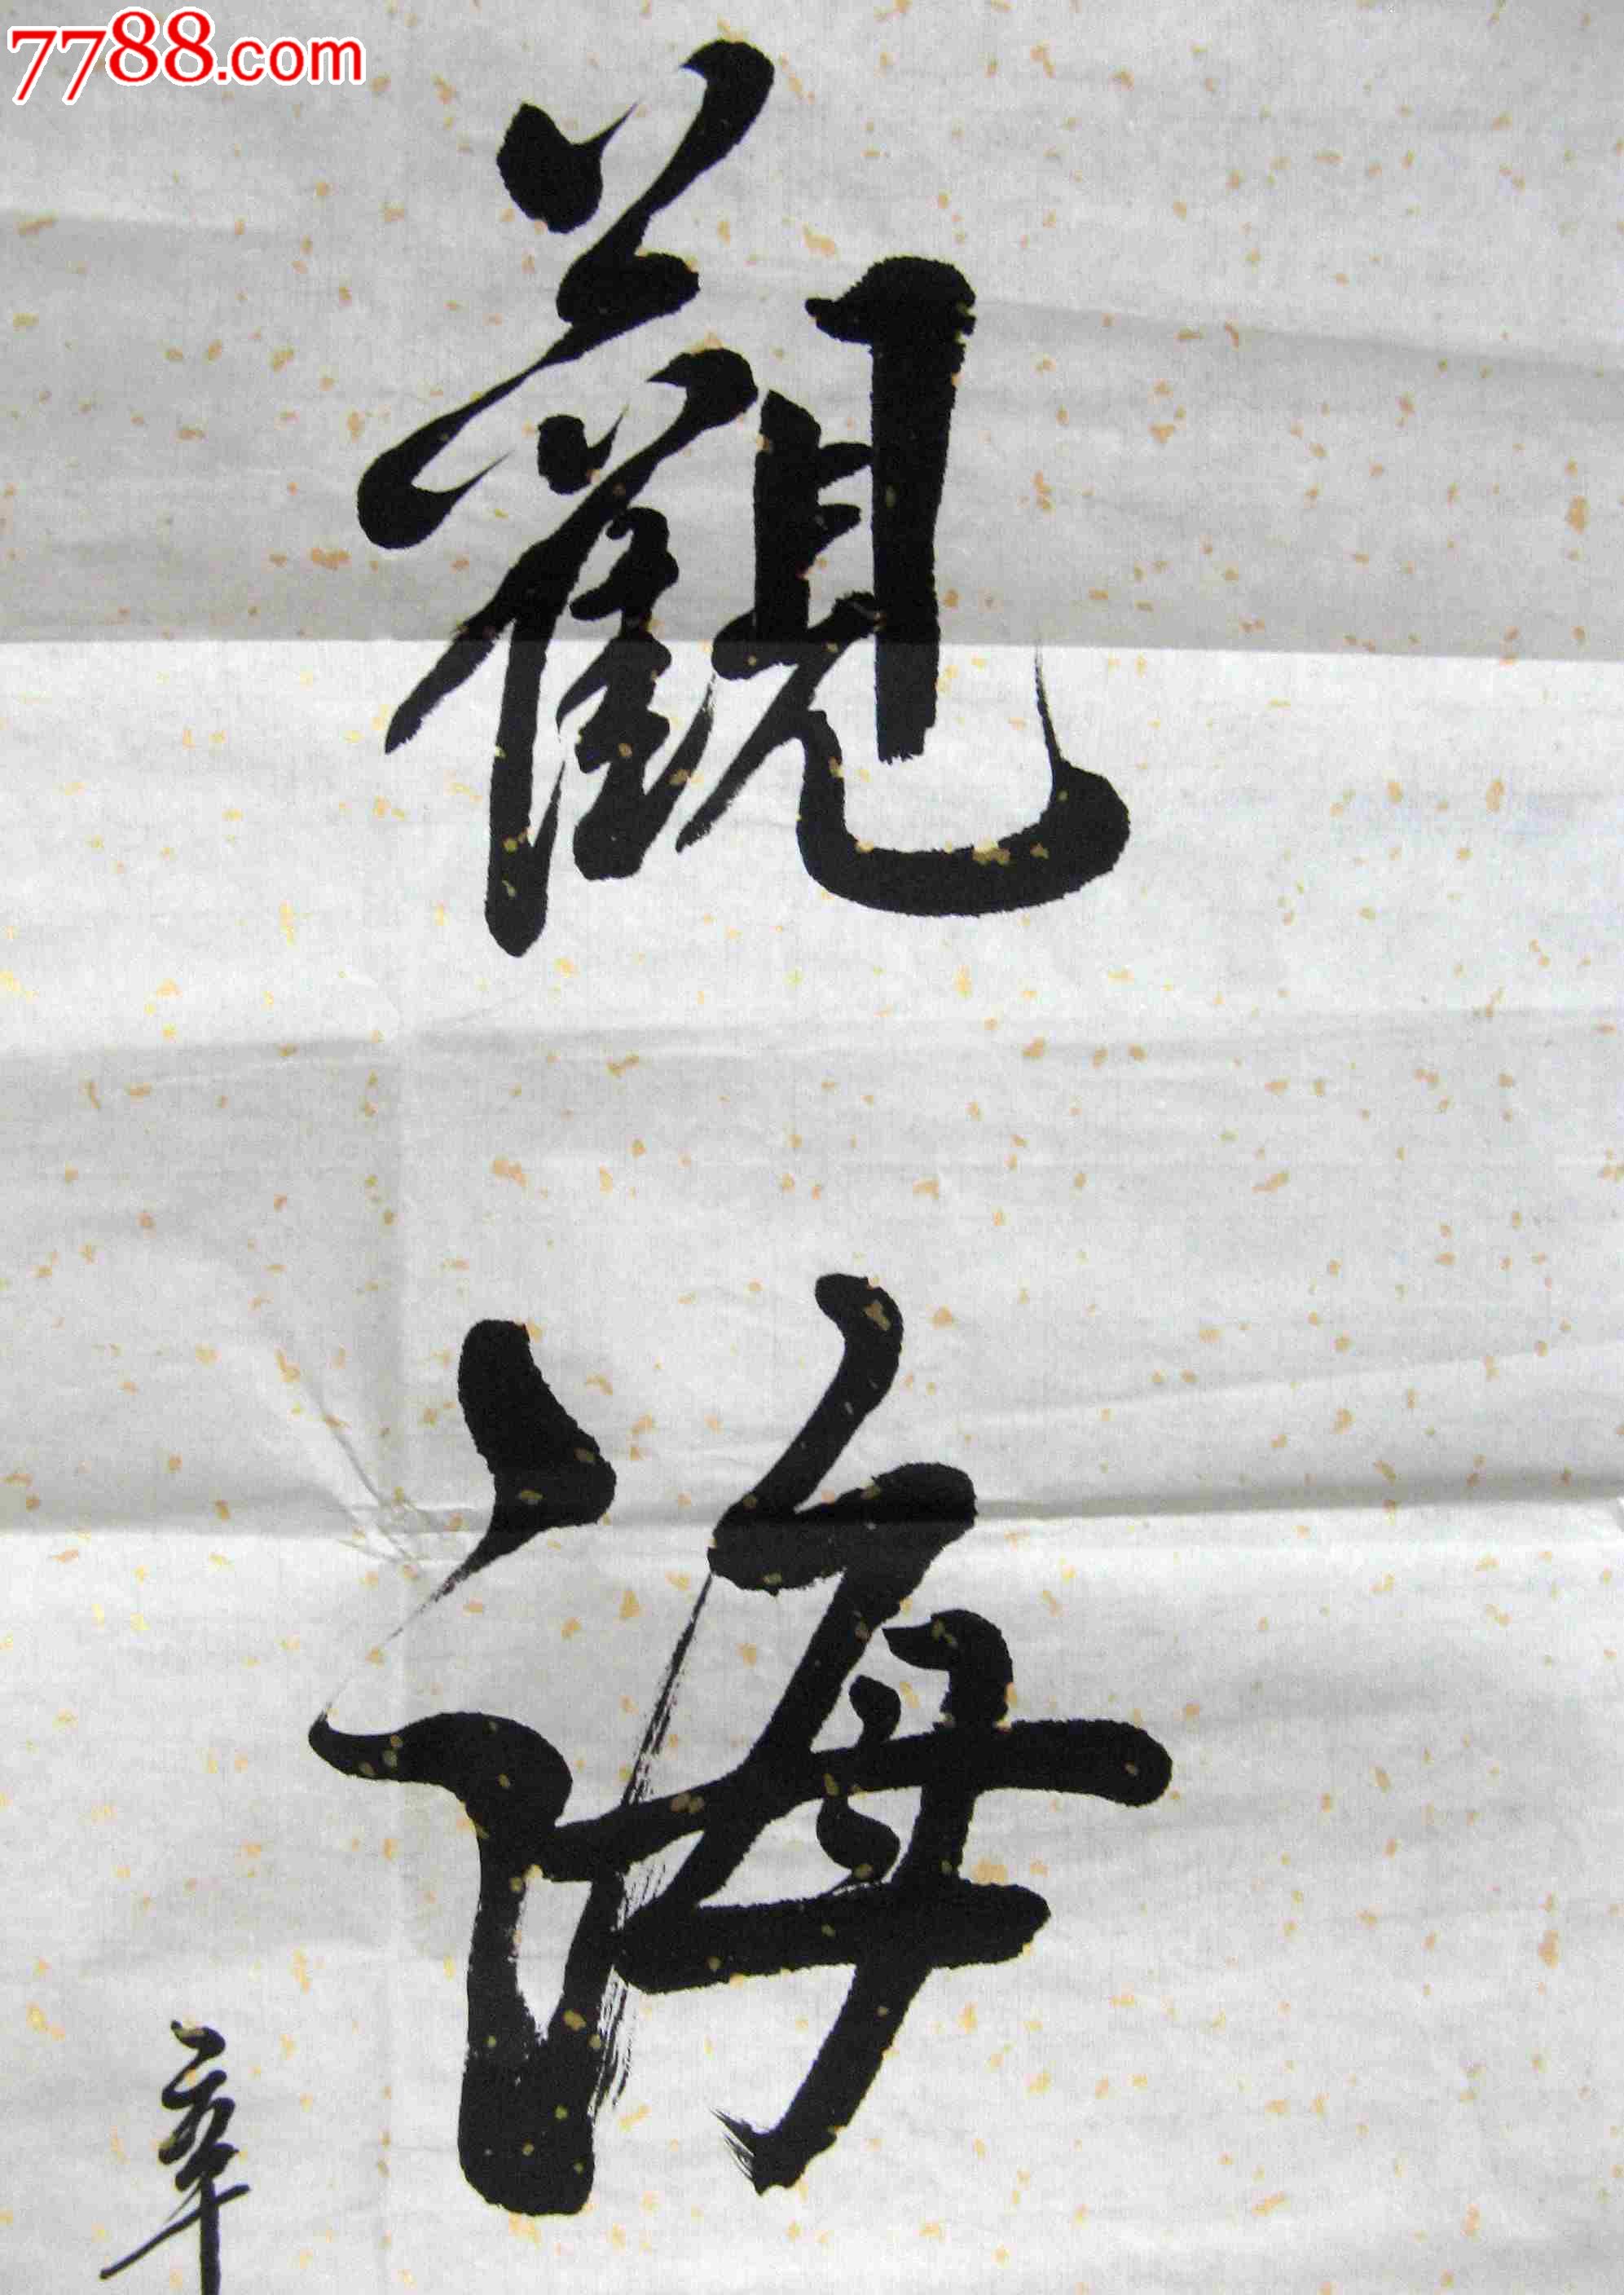 7788.com
觀海
辛